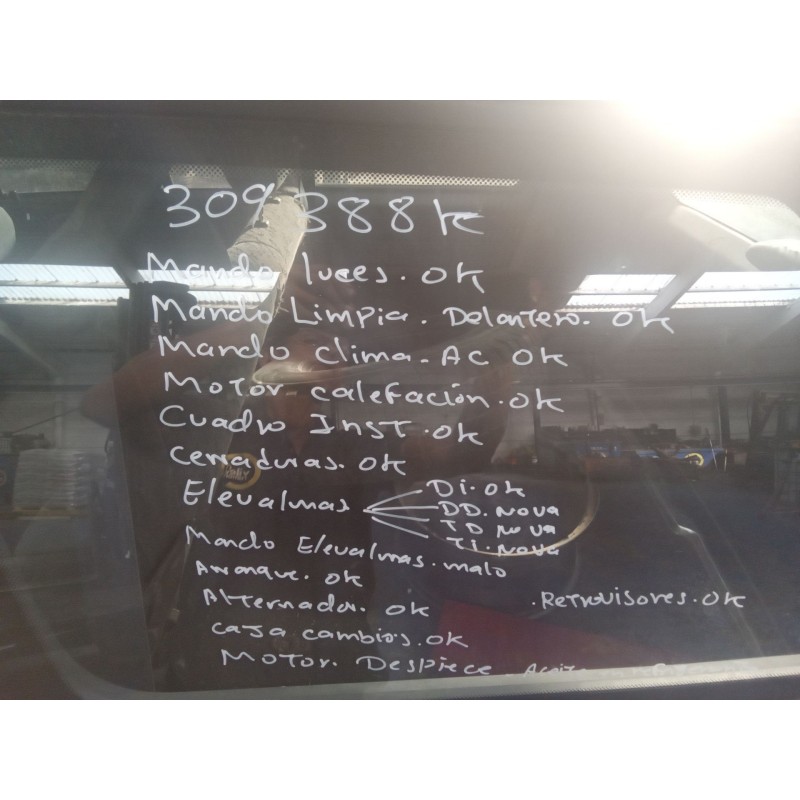 309388k
Mando luces. ok
Mando Limpia. Delantero. ok
Mando clima-AC ok
Motor calefación. ok
Cuadro Inst. ok
Cerraduras. ok
Elevalunas
Di. ok
DD. nova
TD nova
Ti. nova
Mando Elevalunas. malo
Arranque. ok
Alternador. ok
.Retrovisores. ok
caja cambios. ok
Motor. Despiece -